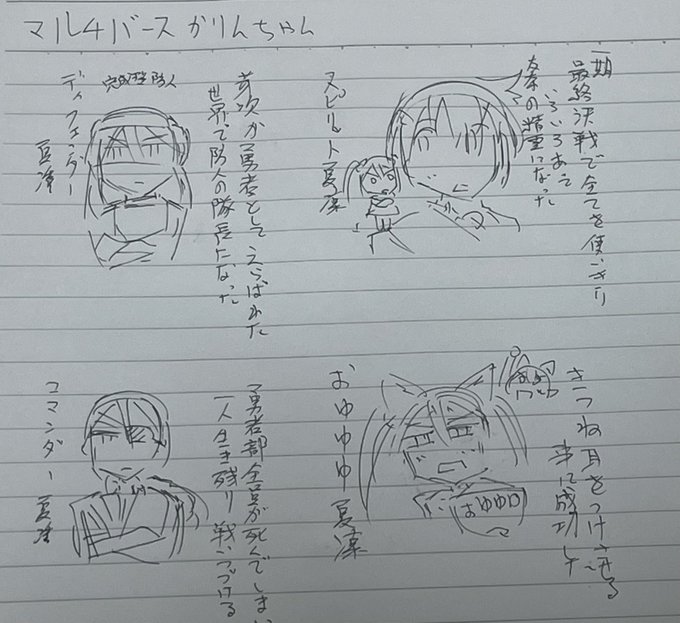 マル4バース かりんちゃん
一期
最終決戦で全てを使いきり
いろいろあって
奏の精霊になった
スピリット夏凜
芽吹が勇者としてえらばれた
世界で防人の隊長になった
完成型防人
ディフェンダー
夏凜
きつね耳をつけさせる
事に成功した
おゆゆゆ夏凜
おゆゆ
勇者部全員が死んでしまい
一人生き残り戦いつづける
コマンダー夏凜